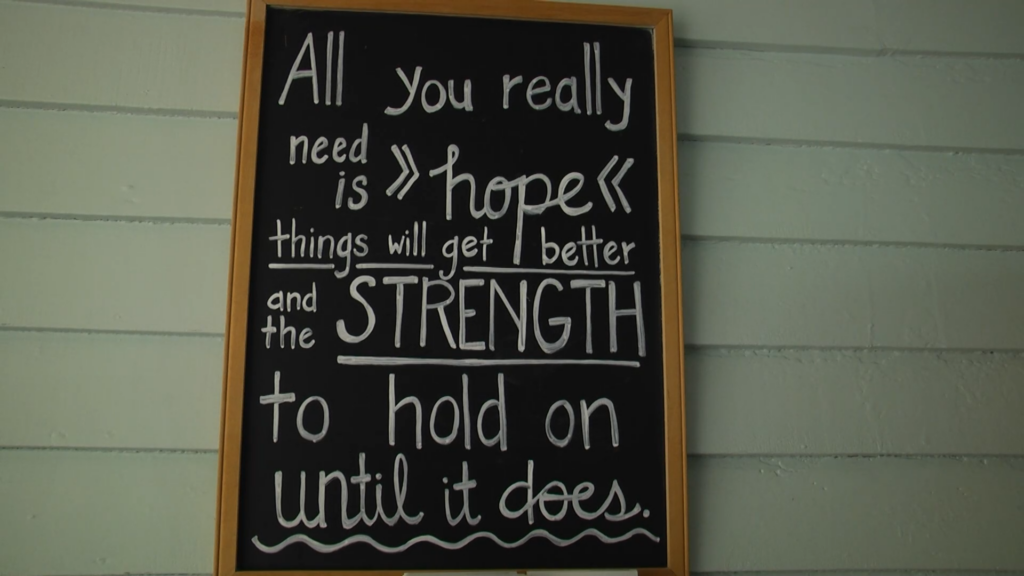 All you really
need
is » hope «
things will get better
and
the STRENGTH
to hold on
until it does.